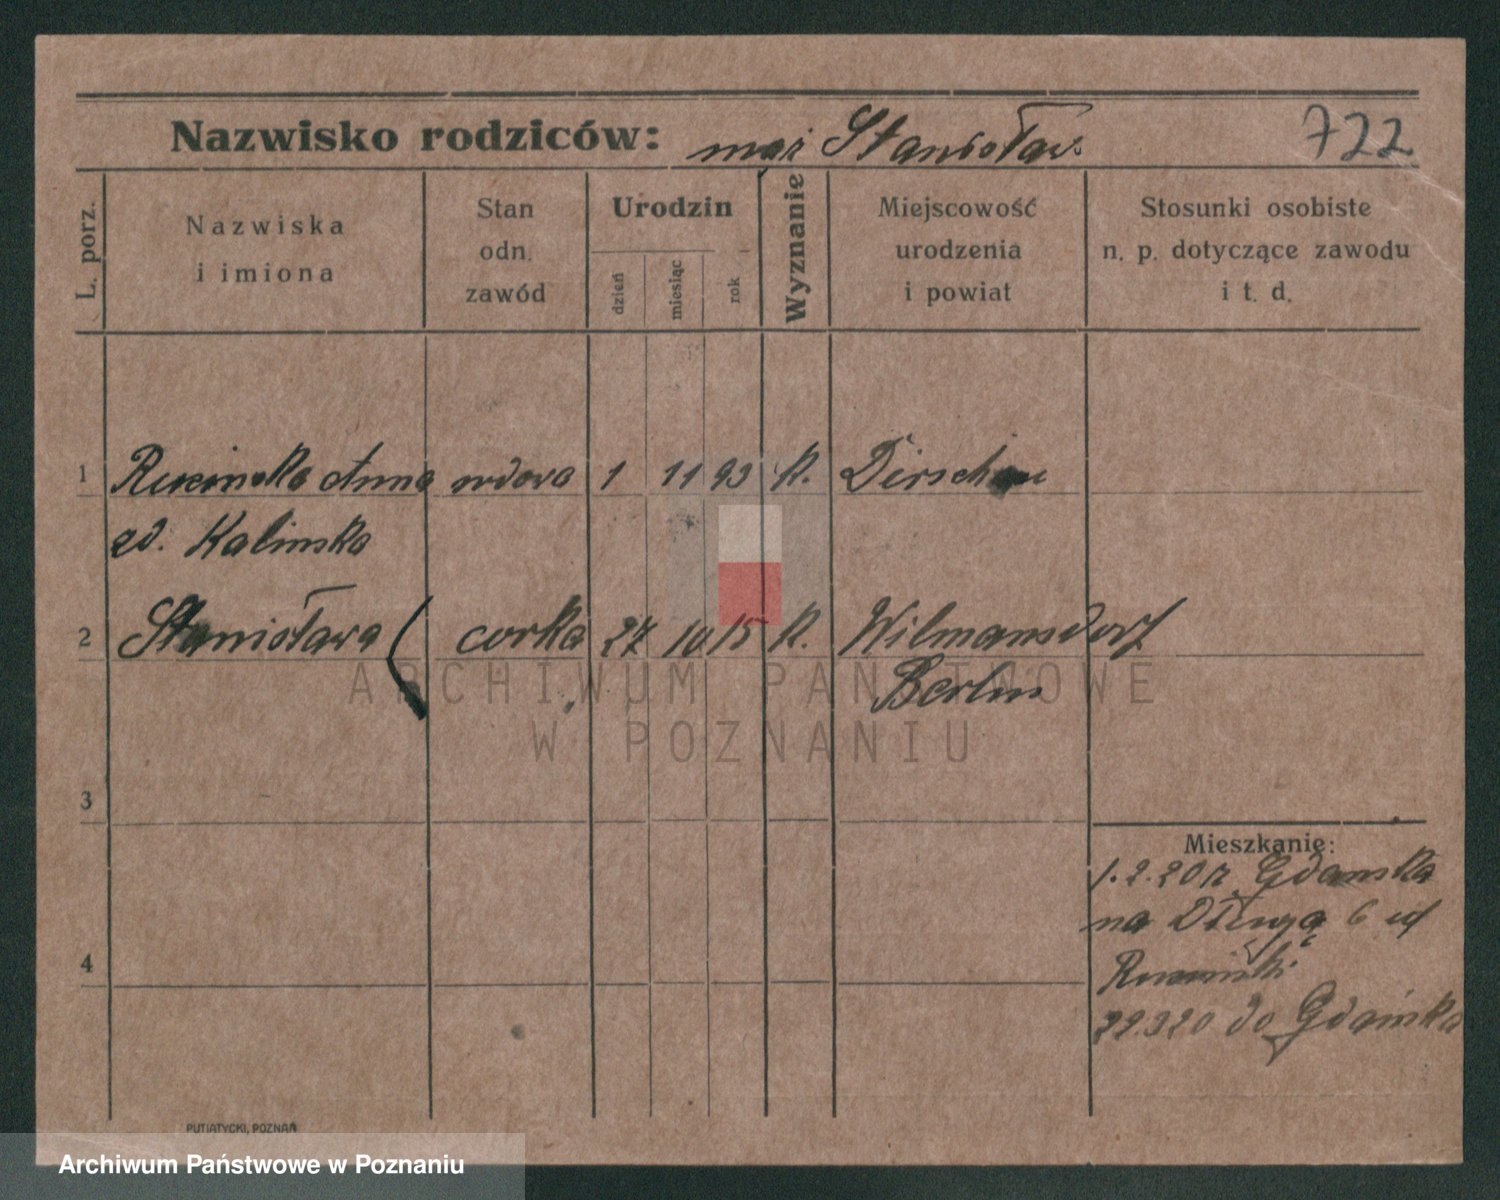 Nazwisko rodziców: mąż Stanisław 722
L. porz.
Nazwiska
i imiona
Stan
odn.
zawód
Urodzin
dzień
miesiąc
rok
Wyznanie
Miejscowość
urodzenia
i powiat
Stosunki osobiste
n. p. dotyczące zawodu
i t. d.
1 Anna wdowa 1 11 93 k. Dirschau
zd. Kalinska
2 Stanisława corka 27 10 15 k. Wilmansdorf
Berlin
ARCHIWUM PAŃSTWOWE
W POZNANIU
3
Mieszkanie:
1.2.20 r Gdanska
na Długą 6
4
22.3 20 do Gdańska
PUTIATYCKI, POZNAŃ
Archiwum Państwowe w Poznaniu